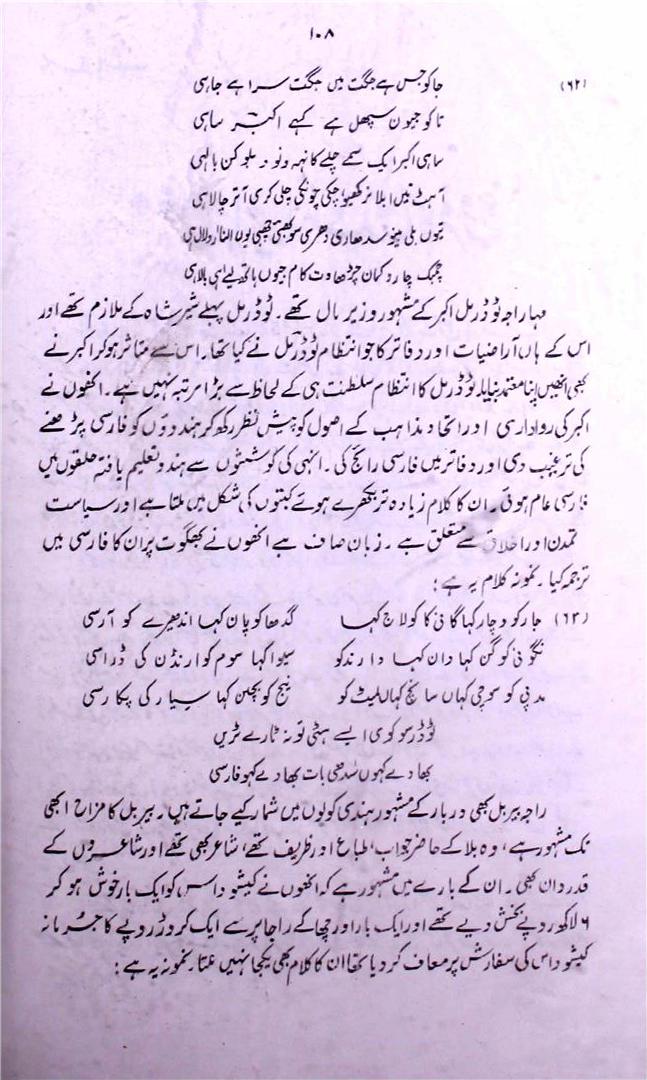 ۱۰۸
(۶۲) جا کو جس ہے جگت میں جگت سرا ہے جاہی
تا کو جیون سپھل ہے کہے اکبر ساہی
ساہی اکبر ایک سمے چلے کانہہ ونود بلوکن بالہی
آہٹ تیں ابلا نرکھیو، چکی چونکی چلی کری آتر چالاہی
تیوں بلی بینو سدھاری دھری سو بھئی چھبی یوں للنا ر دلال ہی
چمپک چارو کمان چڑھاوت کام جیوں ہاتھ لیے اہی بالاہی
مہاراجہ ٹوڈرمل اکبر کے مشہور وزیر مال تھے۔ ٹوڈرمل پہلے شیر شاہ کے ملازم تھے اور
اس کے ہاں آراضیات اور دفاتر کا جو انتظام ٹوڈرمل نے کیا تھا۔ اس سے متاثر ہوکر اکبر نے
بھی انھیں اپنا معتمد بنایا۔ ٹوڈرمل کا انتظام سلطنت ہی کے لحاظ سے بڑا مرتبہ نہیں ہے۔ انھوں نے
اکبر کی رواداری اور اتحاد مذاہب کے اصول کو پیش نظر رکھ کر ہندووں کو فارسی پڑھنے
کی ترغیب دی اور دفاتر میں فارسی رائج کی۔ انہی کی کوششوں سے ہندو تعلیم یافتہ حلقوں میں
فارسی عام ہوئی۔ ان کا کلام زیادہ تر بکھرے ہوئے کبتوں کی شکل میں ملتا ہے اور سیاست
تمدن اور اخلاق سے متعلق ہے۔ زبان صاف ہے انھوں نے بھگوت پران کا فارسی میں
ترجمہ کیا۔ نمونہ کلام یہ ہے:
(۶۳) جار کو وچار کہا گانی کا کو لاج کہا گدھا کو پان کہا اندھرے کو آرسی
نگونی کو گن کہا دان کہا دارند کو سیوا کہا سوم کو ارنڈن کی ڈراسی
مدپی کو سوچی کہاں سانچ کہاں لمپٹ کو نیچ کو بچن کہا سیار کی پکارسی
ٹوڈر سو کوی ایسے ہٹی تو نہ ٹارے ٹریں
بھادے کہوں سدھی بات بھادے کہو فارسی
راجہ بیربل بھی دربار کے مشہور ہندی کویوں میں شمار کیے جاتے ہیں۔ بیربل کا مزاح ابھی
تک مشہور ہے، وہ بلا کے حاضر جواب، طباع اور ظریف تھے، شاعر بھی تھے اور شاعروں کے
قدردان بھی۔ ان کے بارے میں مشہور ہے کہ انھوں نے کیشو داس کو ایک بار خوش ہو کر
۶ لاکھ روپے بخش دیے تھے اور ایک بار اورچھا کے راجا پر سے ایک کروڑ روپے کا جرمانہ
کیشو داس کی سفارش پر معاف کر دیا تھا ان کا کلام بھی یکجا نہیں ملتا۔ نمونہ یہ ہے: